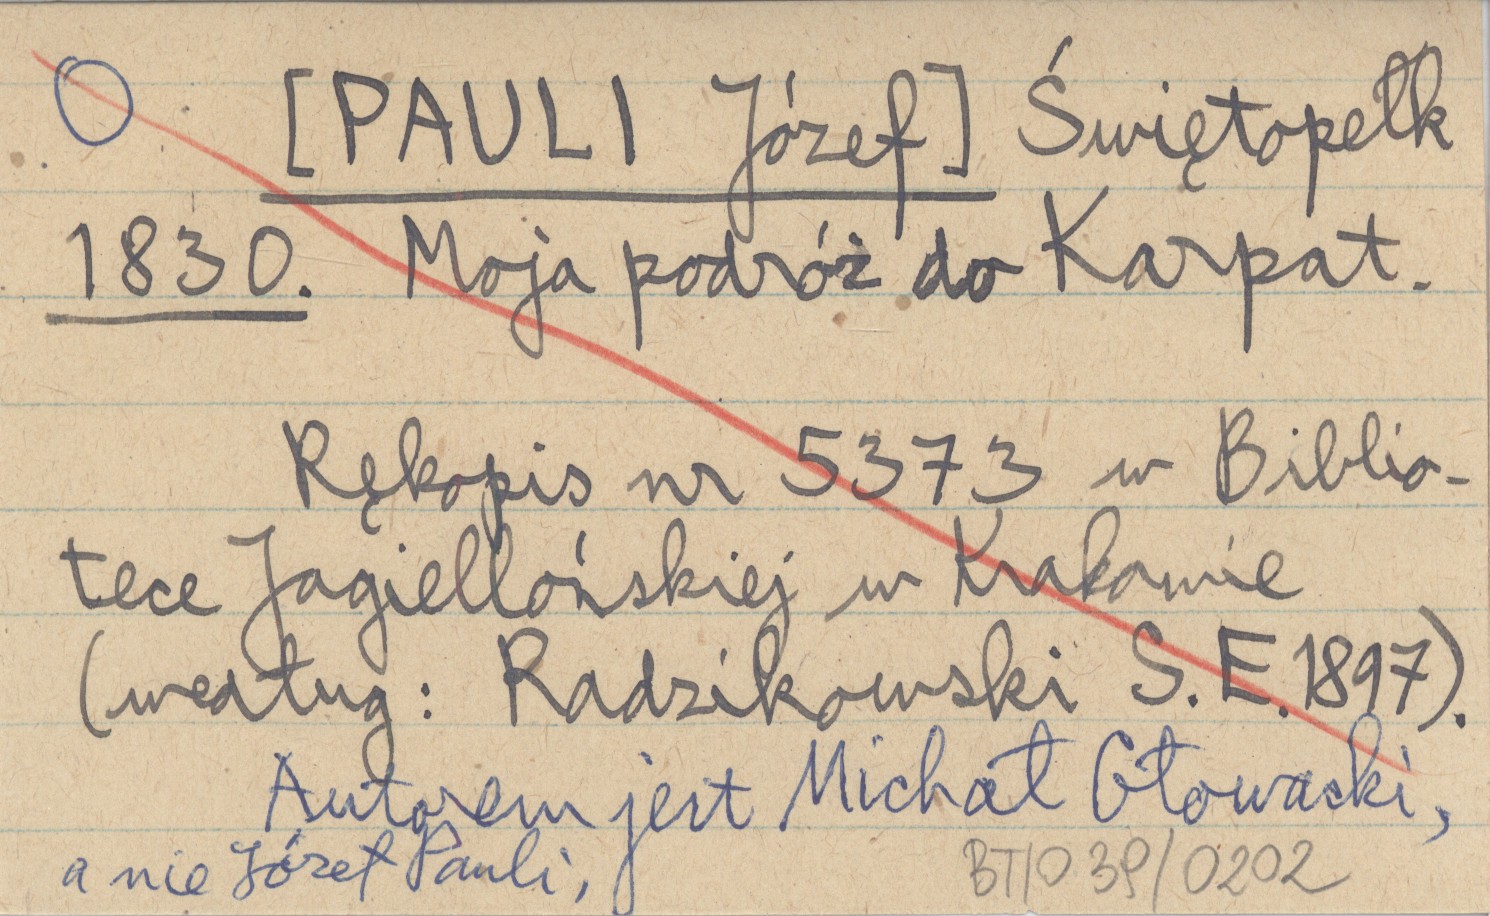 [PAULI Józef] Świętopełk
1830. Moja podróż do Karpat.
Rękopis nr 5373 w Biblio-
tece Jagiellońskiej w Krakowie
(według: Radzikowski S.E. 1897).
Autorem jest Michał Głowacki,
a nie Józef Pauli,
BT/O 39/0202